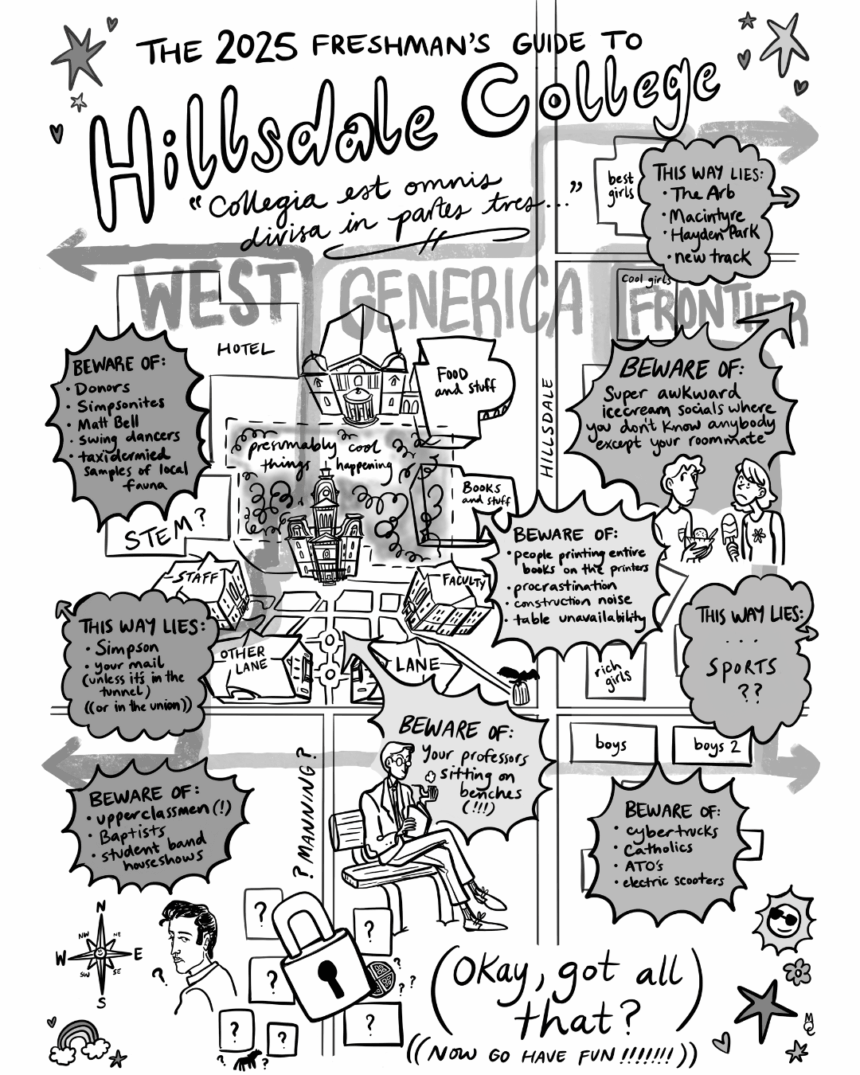 THE 2025 FRESHMAN'S GUIDE TO
Hillsdale College
"Collegia est omnis
divisa in partes tres..."
best
girls
THIS WAY LIES:
• The Arb
• Macintyre
• Hayden Park
• new track
WEST
GENERICA
FRONTIER
Cool girls
HOTEL
FOOD
and stuff
HILLSDALE
BEWARE OF:
• Donors
• Simpsonites
• Matt Bell
• swing dancers
• taxidermied
samples of local
fauna
presumably cool
things happening
BEWARE OF:
Super awkward
icecream socials where
you don't know anybody
except your roommate
BOOKS
and stuff
STEM?
BEWARE OF:
• people printing entire
books on the printers
• procrastination
• construction noise
• table unavailability
STAFF
FACULTY
THIS WAY LIES:
• Simpson
• your mail
(unless it's in the
tunnel)
((or in the union))
OTHER
LANE
LANE
rich
girls
THIS WAY LIES:
...
SPORTS
??
BEWARE OF:
Your professors
sitting on
benches
(!!!)
boys
boys 2
? MANNING?
BEWARE OF:
• upperclassmen (!)
• Baptists
• student band
houseshows
BEWARE OF:
• cybertrucks
• Catholics
• ATO's
• electric scooters
N
NW NE
W E
SW SE
S
?
?
?
?
?
?
?
?
? ?
? ?
?
(Okay, got all
that?)
((NOW GO HAVE FUN!!!!!!!))